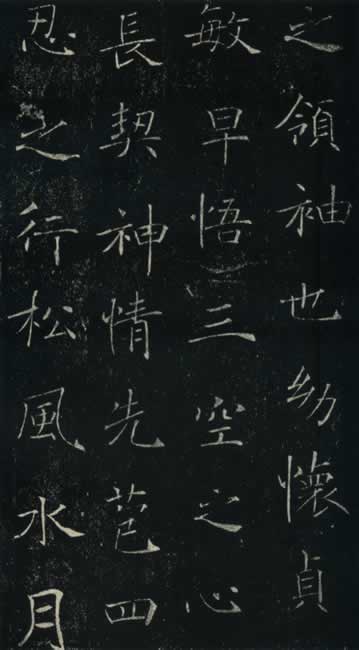 之領袖也幼懷貞
敏早悟三空之心
長契神情先苞四
忍之行松風水月